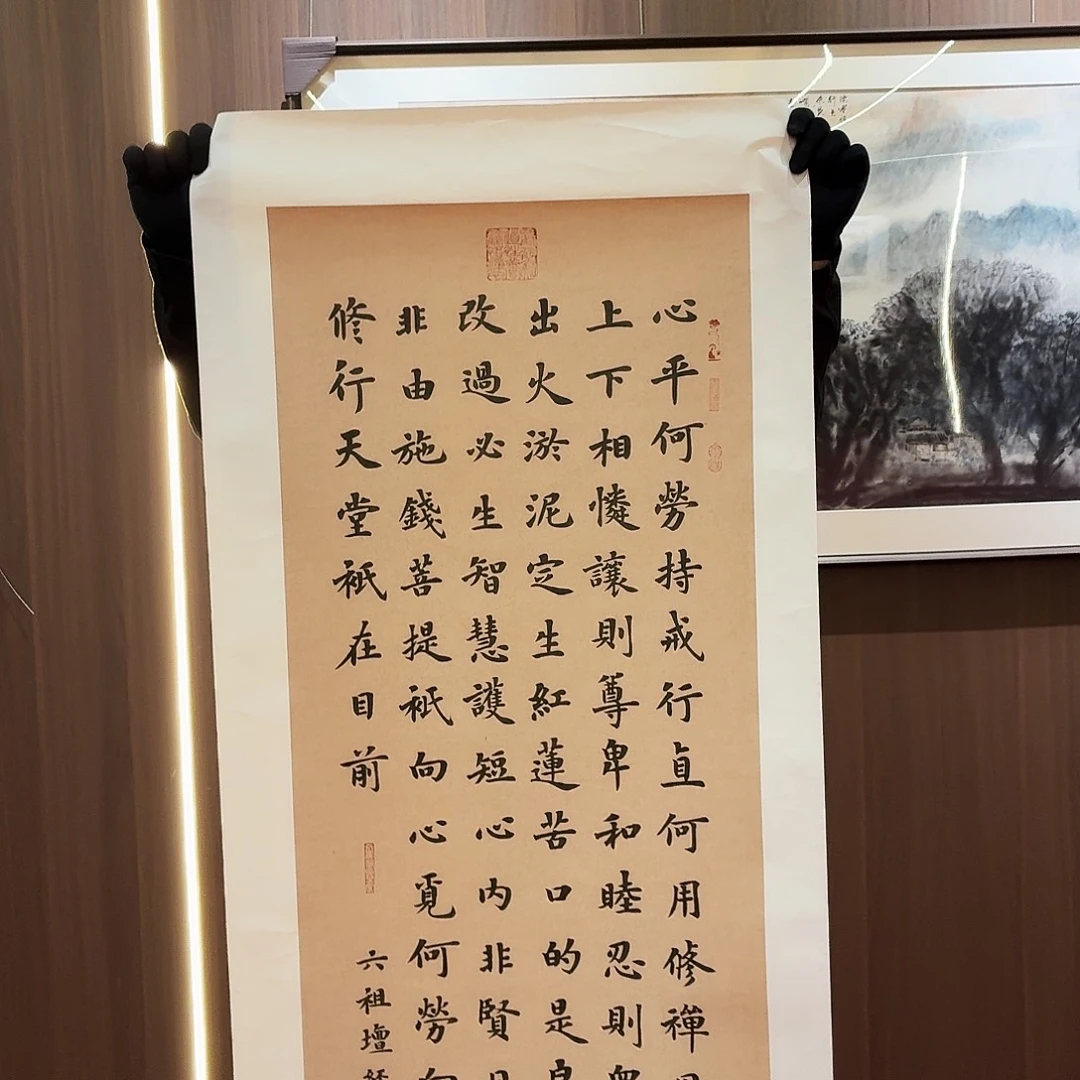 心平何勞持戒行直何用修禪
上下相憐讓則尊卑和睦忍則
出火淤泥定生紅蓮苦口的是
改過必生智慧護短心內非賢
非由施錢菩提衹向心覓何勞
修行天堂衹在目前
六祖壇